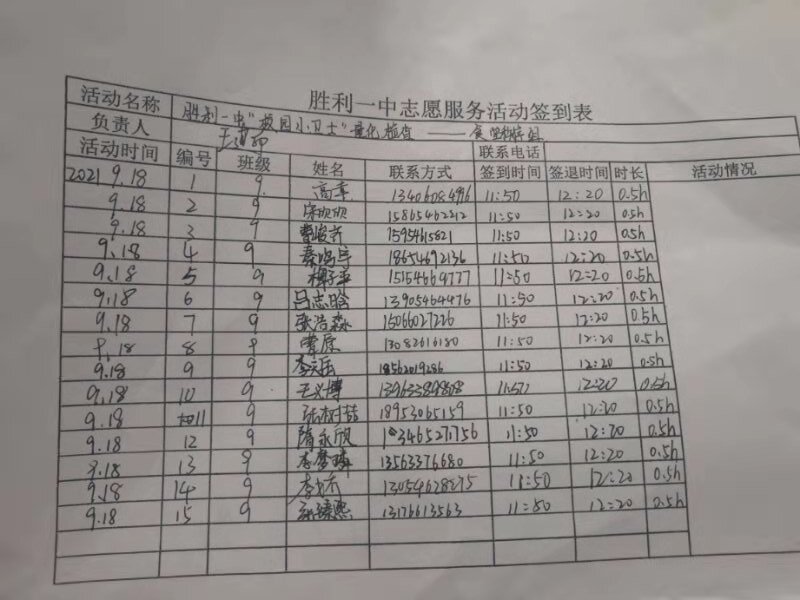 胜利一中志愿服务活动签到表
活动名称 胜利一中"校园小卫士"量化检查——食堂
负责人 联系电话
活动时间 编号 班级 姓名 联系方式 签到时间 签退时间 时长 活动情况
2021 9.18 1 9 高幸 11:50 12:20 0.5h
9.18 2 9 宋欣欣 15865462212 11:50 12:20 0.5h
9.18 3 9 15954615821 11:50 12:20 0.5h
9.18 4 9 秦鸣宇 18654692136 11:50 12:20 0.5h
9.18 5 9 15154669777 11:50 12:20 0.5h
9.18 6 9 吕志晗 13905464476 11:50 12:20 0.5h
9.18 7 9 张浩淼 15066027226 11:50 12:20 0.5h
9.18 8 9 曹原 13082616180 11:50 12:20 0.5h
9.18 9 9 18562019286 11:50 12:20 0.5h
9.18 10 9 王义博 11:50 12:20 0.5h
9.18 11 9 张树喆 18953065159 11:50 12:20 0.5h
9.18 12 9 隋永欣 11:50 12:20 0.5h
9.18 13 9 李梦璘 13563376680 11:50 12:20 0.5h
9.18 14 9 13054628275 11:50 12:20 0.5h
9.18 15 9 13176613563 11:50 12:20 0.5h